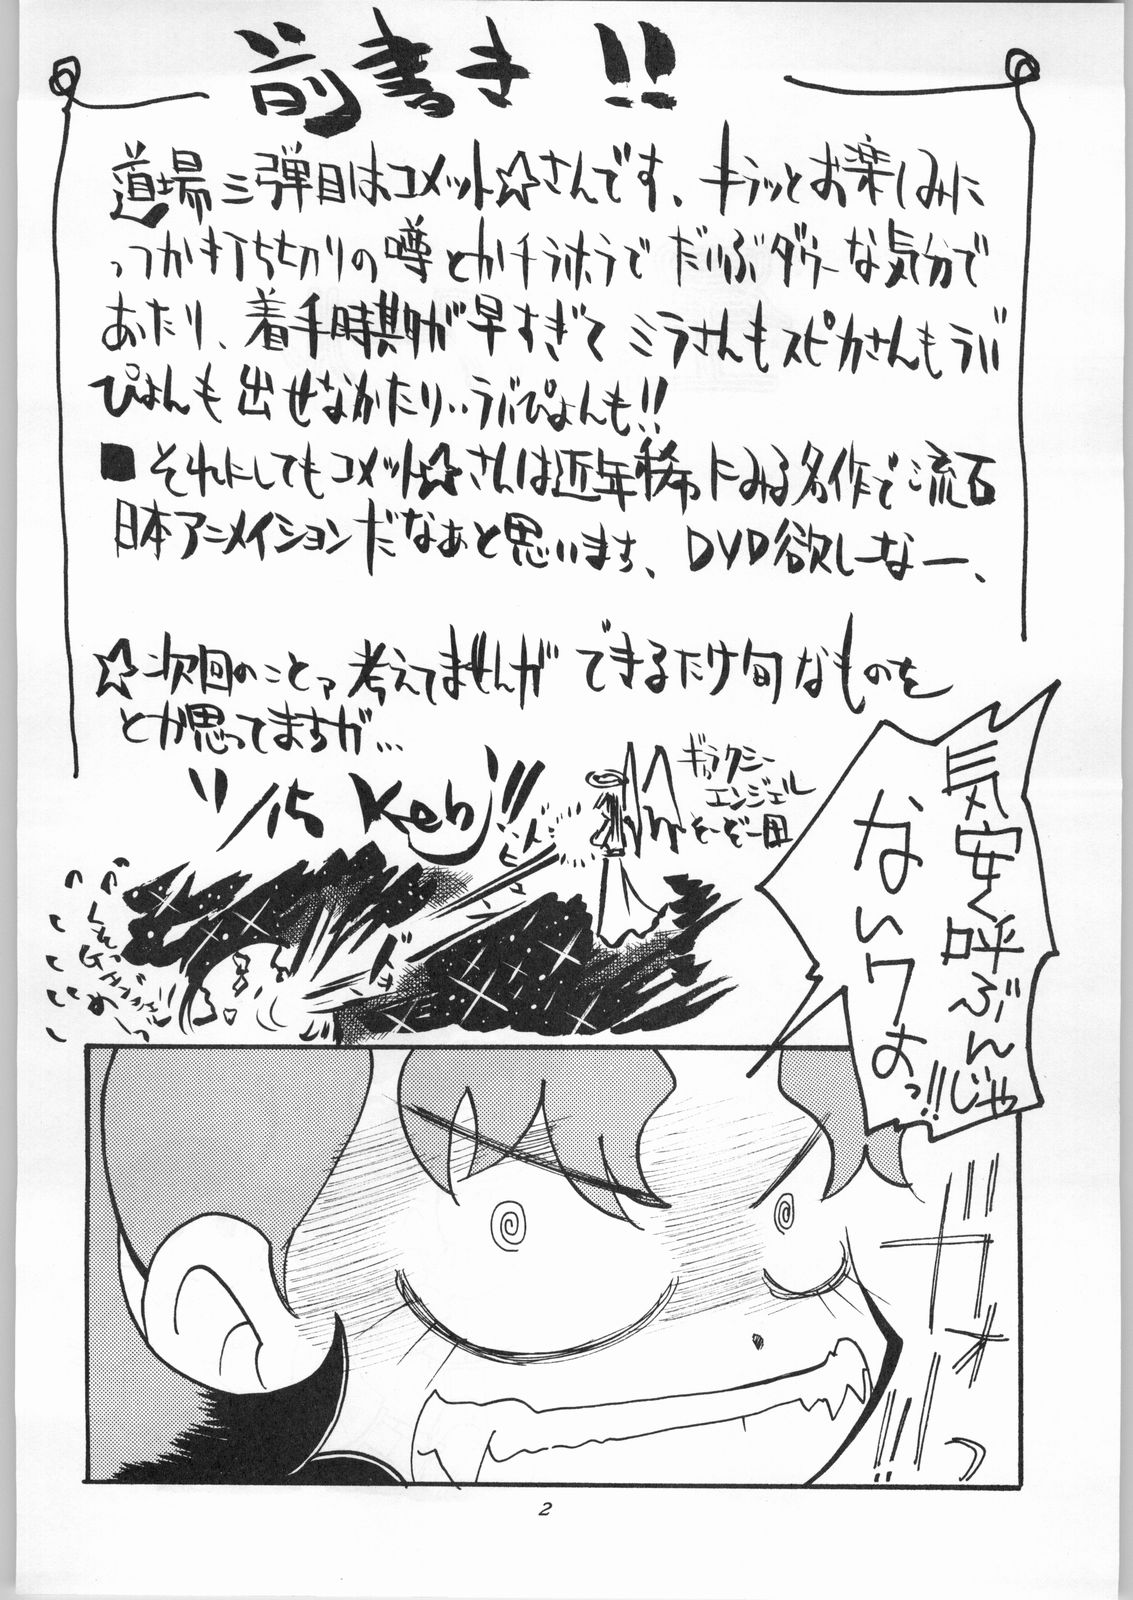 前書き!!
道場三弾目はコメット☆さんです、キラッとお楽しみに
っつかもう打ち切りの噂とかチラホラでだいぶダウナーな気分で
あたり、着手時期が早すぎてミラさんもスピカさんもラバ
ぴょんも出せなかたり‥ラバぴょんも!!
■それにしてもコメット☆さんは近年稀にみる名作で流石
日本アニメイションだなぁと思います、DVD欲しーなー、
☆次回のことァ考えてませんができるだけ旬なものを
とか思ってますが…
11/15 Keb
ギャラクシー
エンジェル
そーぞー図
気安く呼ぶんじゃ
ないワよっ!!
カオーっ!!
2